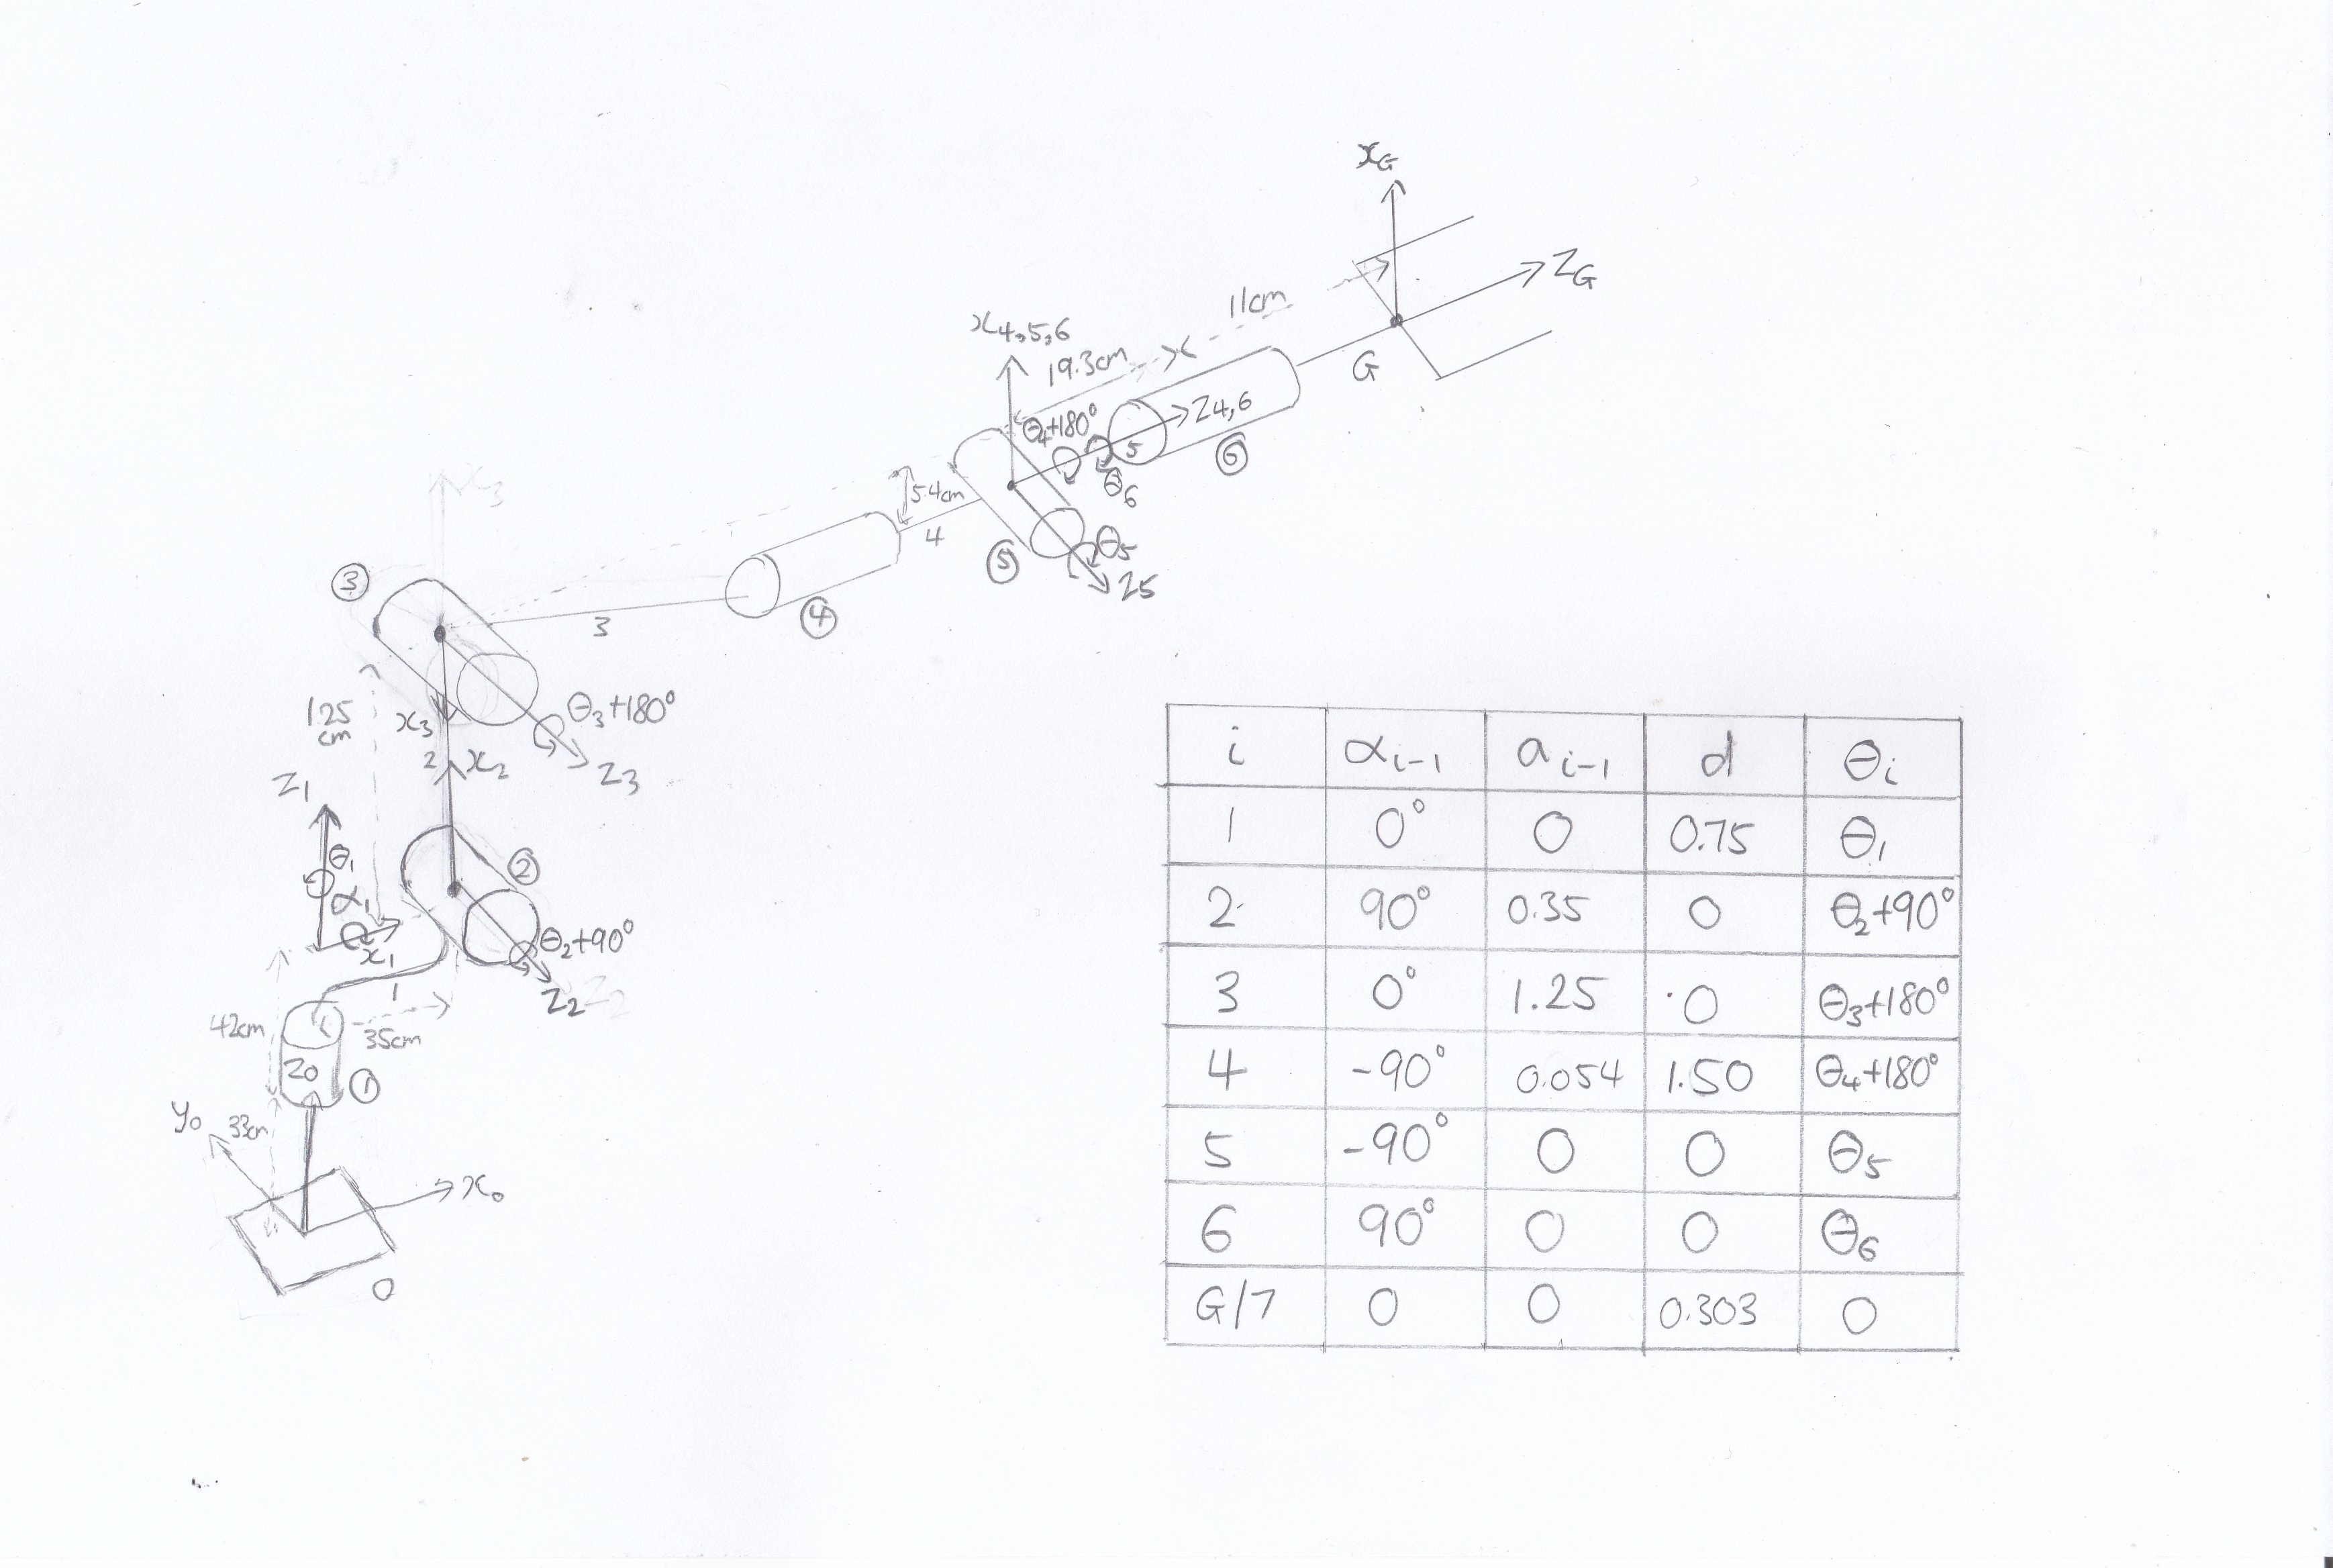 xG
ZG
11cm
x4,5,6
19.3cm
G
Z4,6
θ4+180°
5
θ6
6
5.4cm
4
θ5
5
Z5
x3
3
3
4
θ3+180°
125
cm
x3
2
x2
Z3
Z1
θ1
2
α1
θ2+90°
x1
Z2
1
42cm
35cm
Z0
1
y0
33cm
x0
0
i αi-1 ai-1 d θi
1 0° 0 0.75 θ1
2 90° 0.35 0 θ2+90°
3 0° 1.25 0 θ3+180°
4 -90° 0.054 1.50 θ4+180°
5 -90° 0 0 θ5
6 90° 0 0 θ6
G/7 0 0 0.303 0